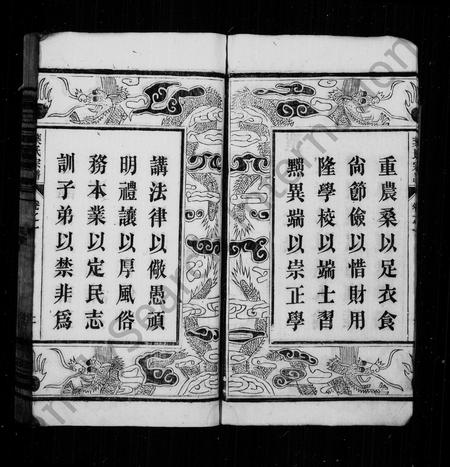 重農桑以足衣食
尙節儉以惜財用
隆學校以端士習
黜異端以崇正學
講法律以儆愚頑
明禮讓以厚風俗
務本業以定民志
訓子弟以禁非為